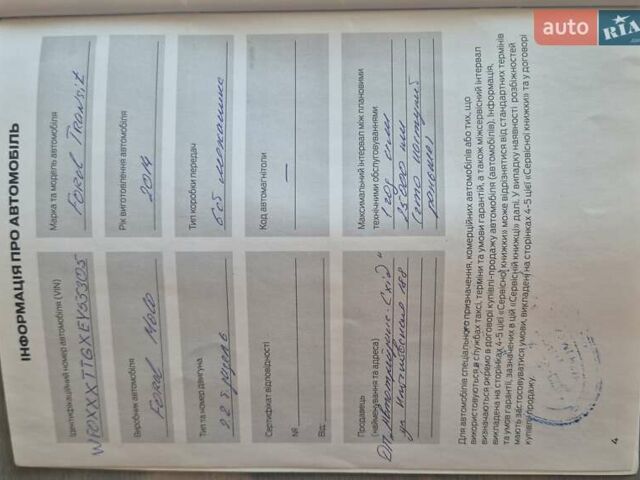 ІНФОРМАЦІЯ ПРО АВТОМОБІЛЬ
Ідентифікаційний номер автомобіля (VIN)
Марка та модель автомобіля
Ford Transit
Виробник автомобіля
Ford Moto
Рік виготовлення автомобіля
2014
Тип та номер двигуна
2.2
Тип коробки передач
Сертифікат відповідності
№
Від
Код автомагнітоли
—
Продавець
(найменування та адреса)
Максимальний інтервал між плановими
технічними обслуговуваннями
1 год или
25000 км
раньше,
Для автомобілів спеціального призначення, комерційних автомобілів або тих, що
використовуються в службах таксі, терміни та умови гарантій, а також міжсервісний інтервал
визначаються окремо в договорі купівлі-продажу автомобіля (автомобілів). Інформація,
викладена на сторінках 4-5 цієї «Сервісної книжки» може відрізнятися від стандартних термінів
та умов гарантії, зазначених в цій «Сервісній книжці» далі. У випадку наявності розбіжностей
мають застосовуватися умови, викладені на сторінках 4-5 цієї «Сервісної книжки» та у договорі
купівлі-продажу.
4
auto RIA